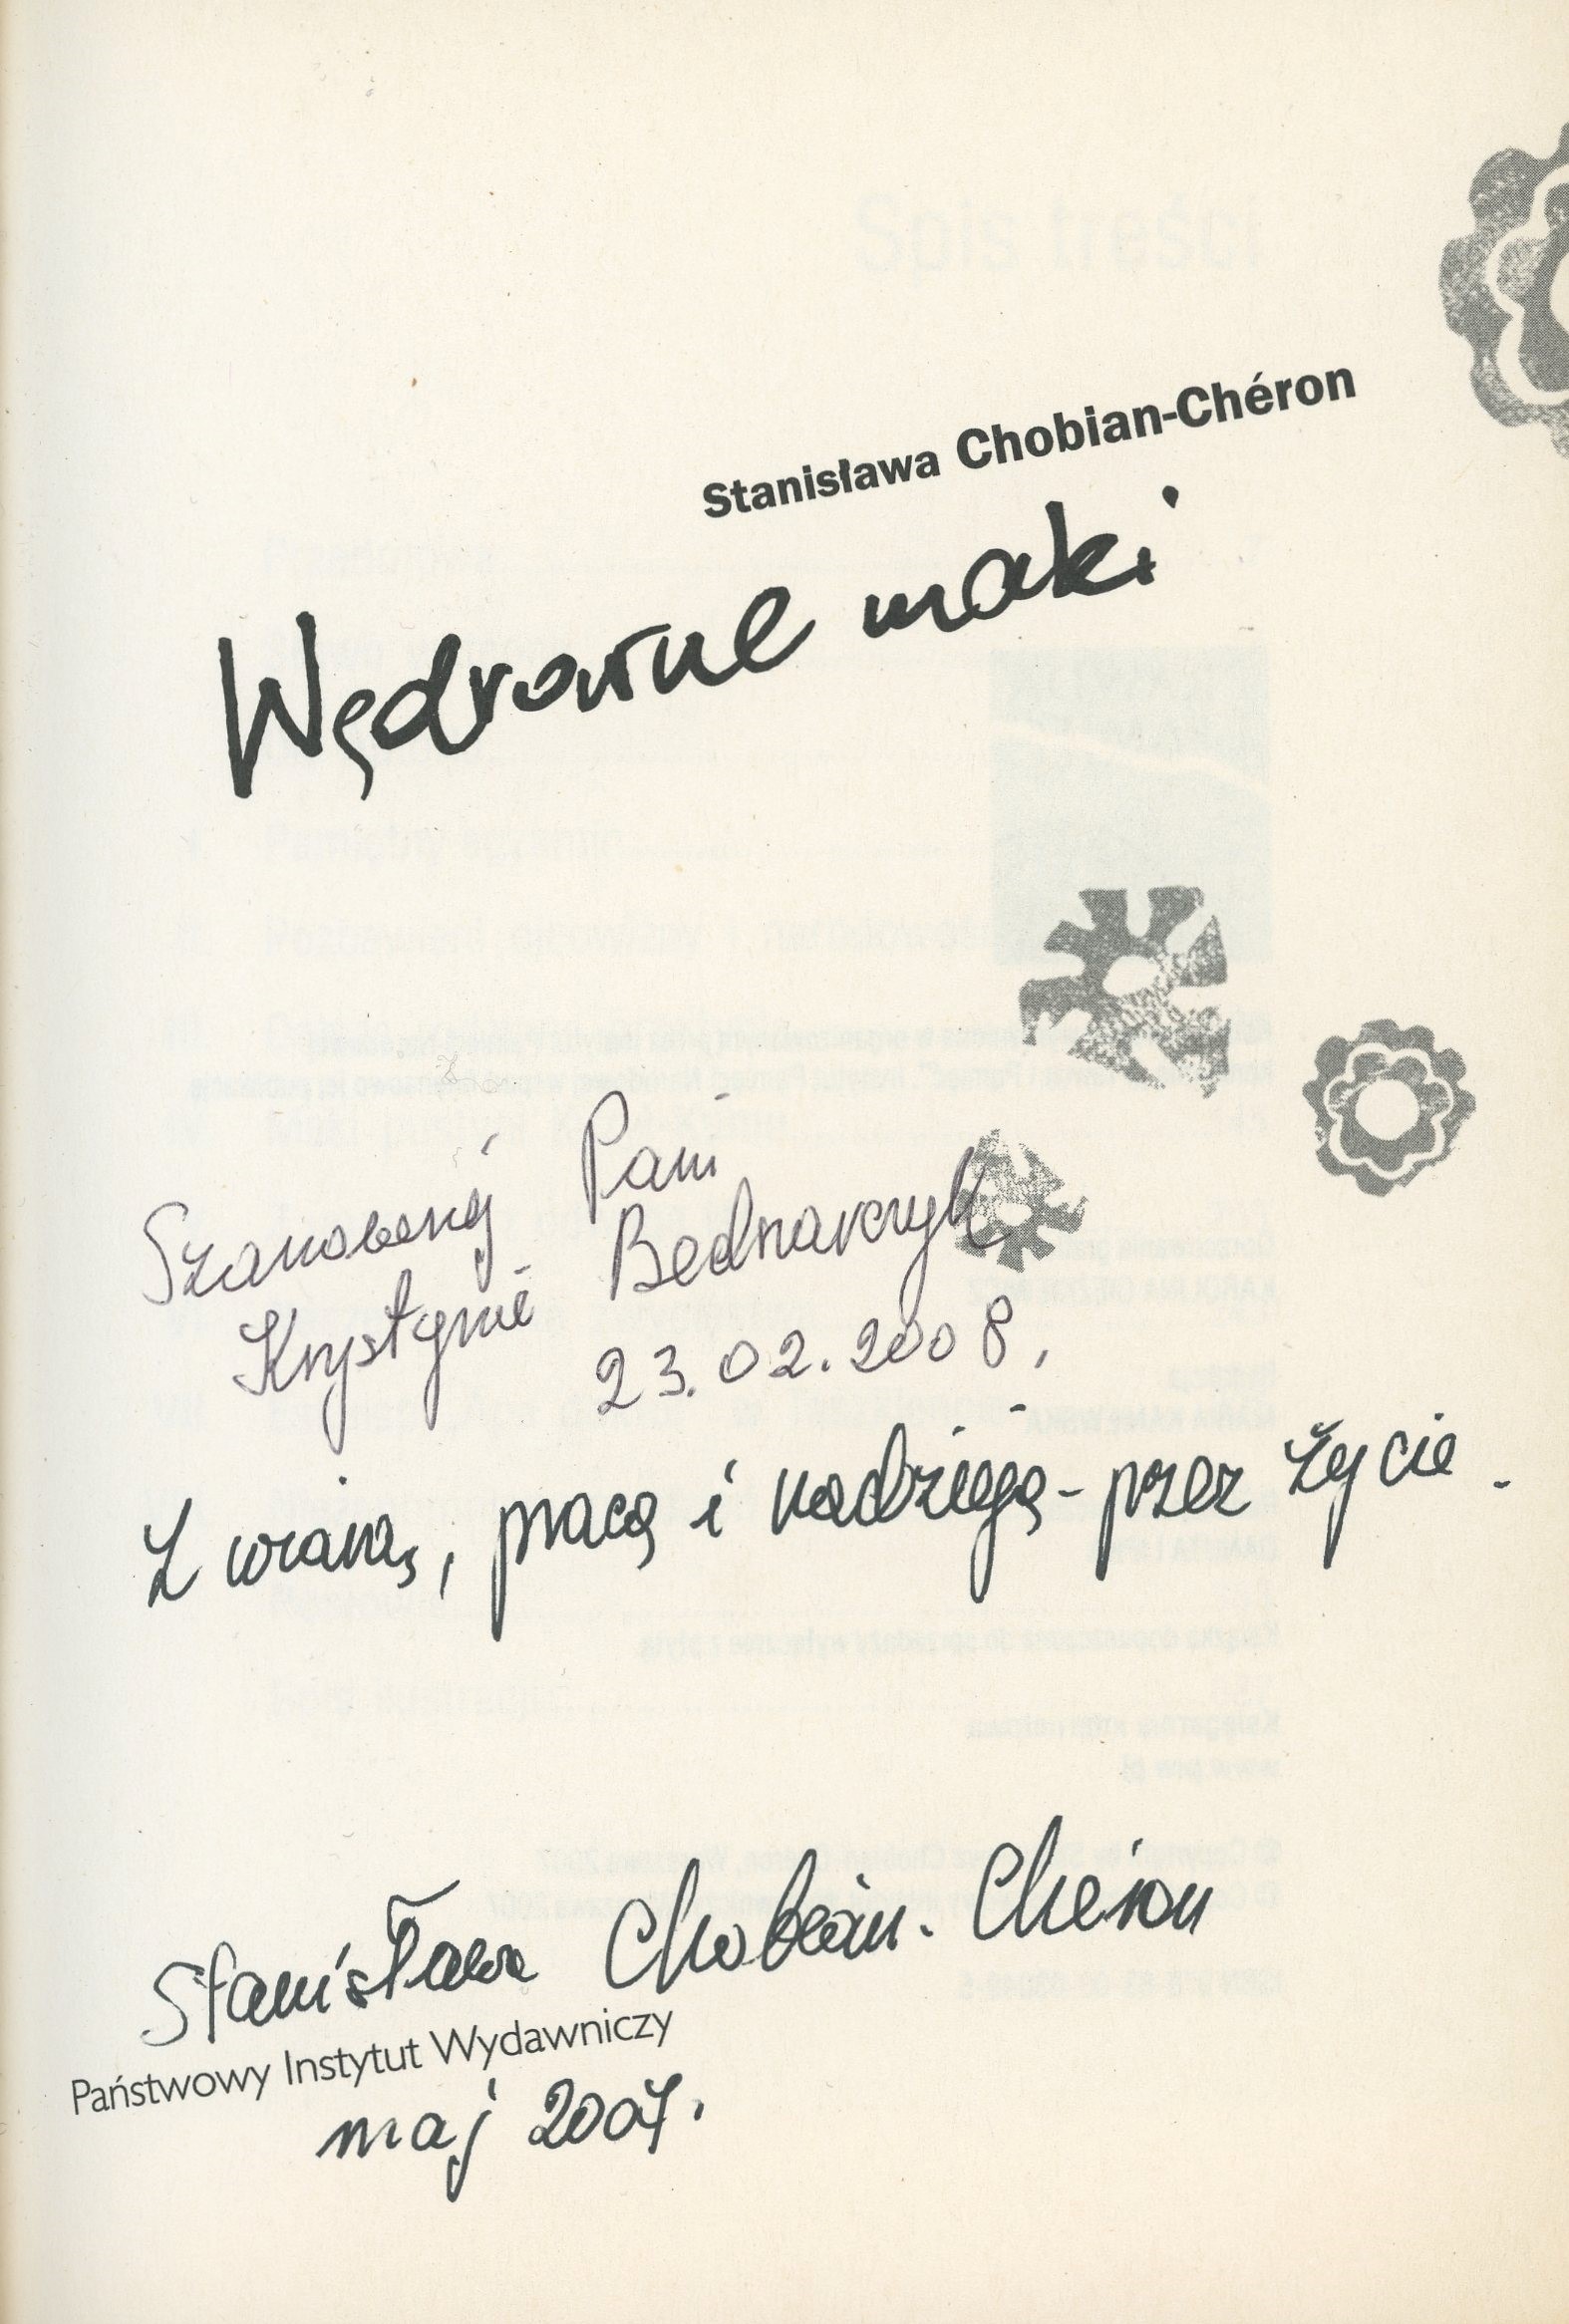 Stanisława Chobian-Chéron
Wędrowne maki
Szanownej Pani
Krystynie Bednarczyk
23.02.2008.
Z wiarą, pracą i nadzieją - przez życie.
Stanisława Chobian-Chéron
Państwowy Instytut Wydawniczy
maj 2007.
Spis treści